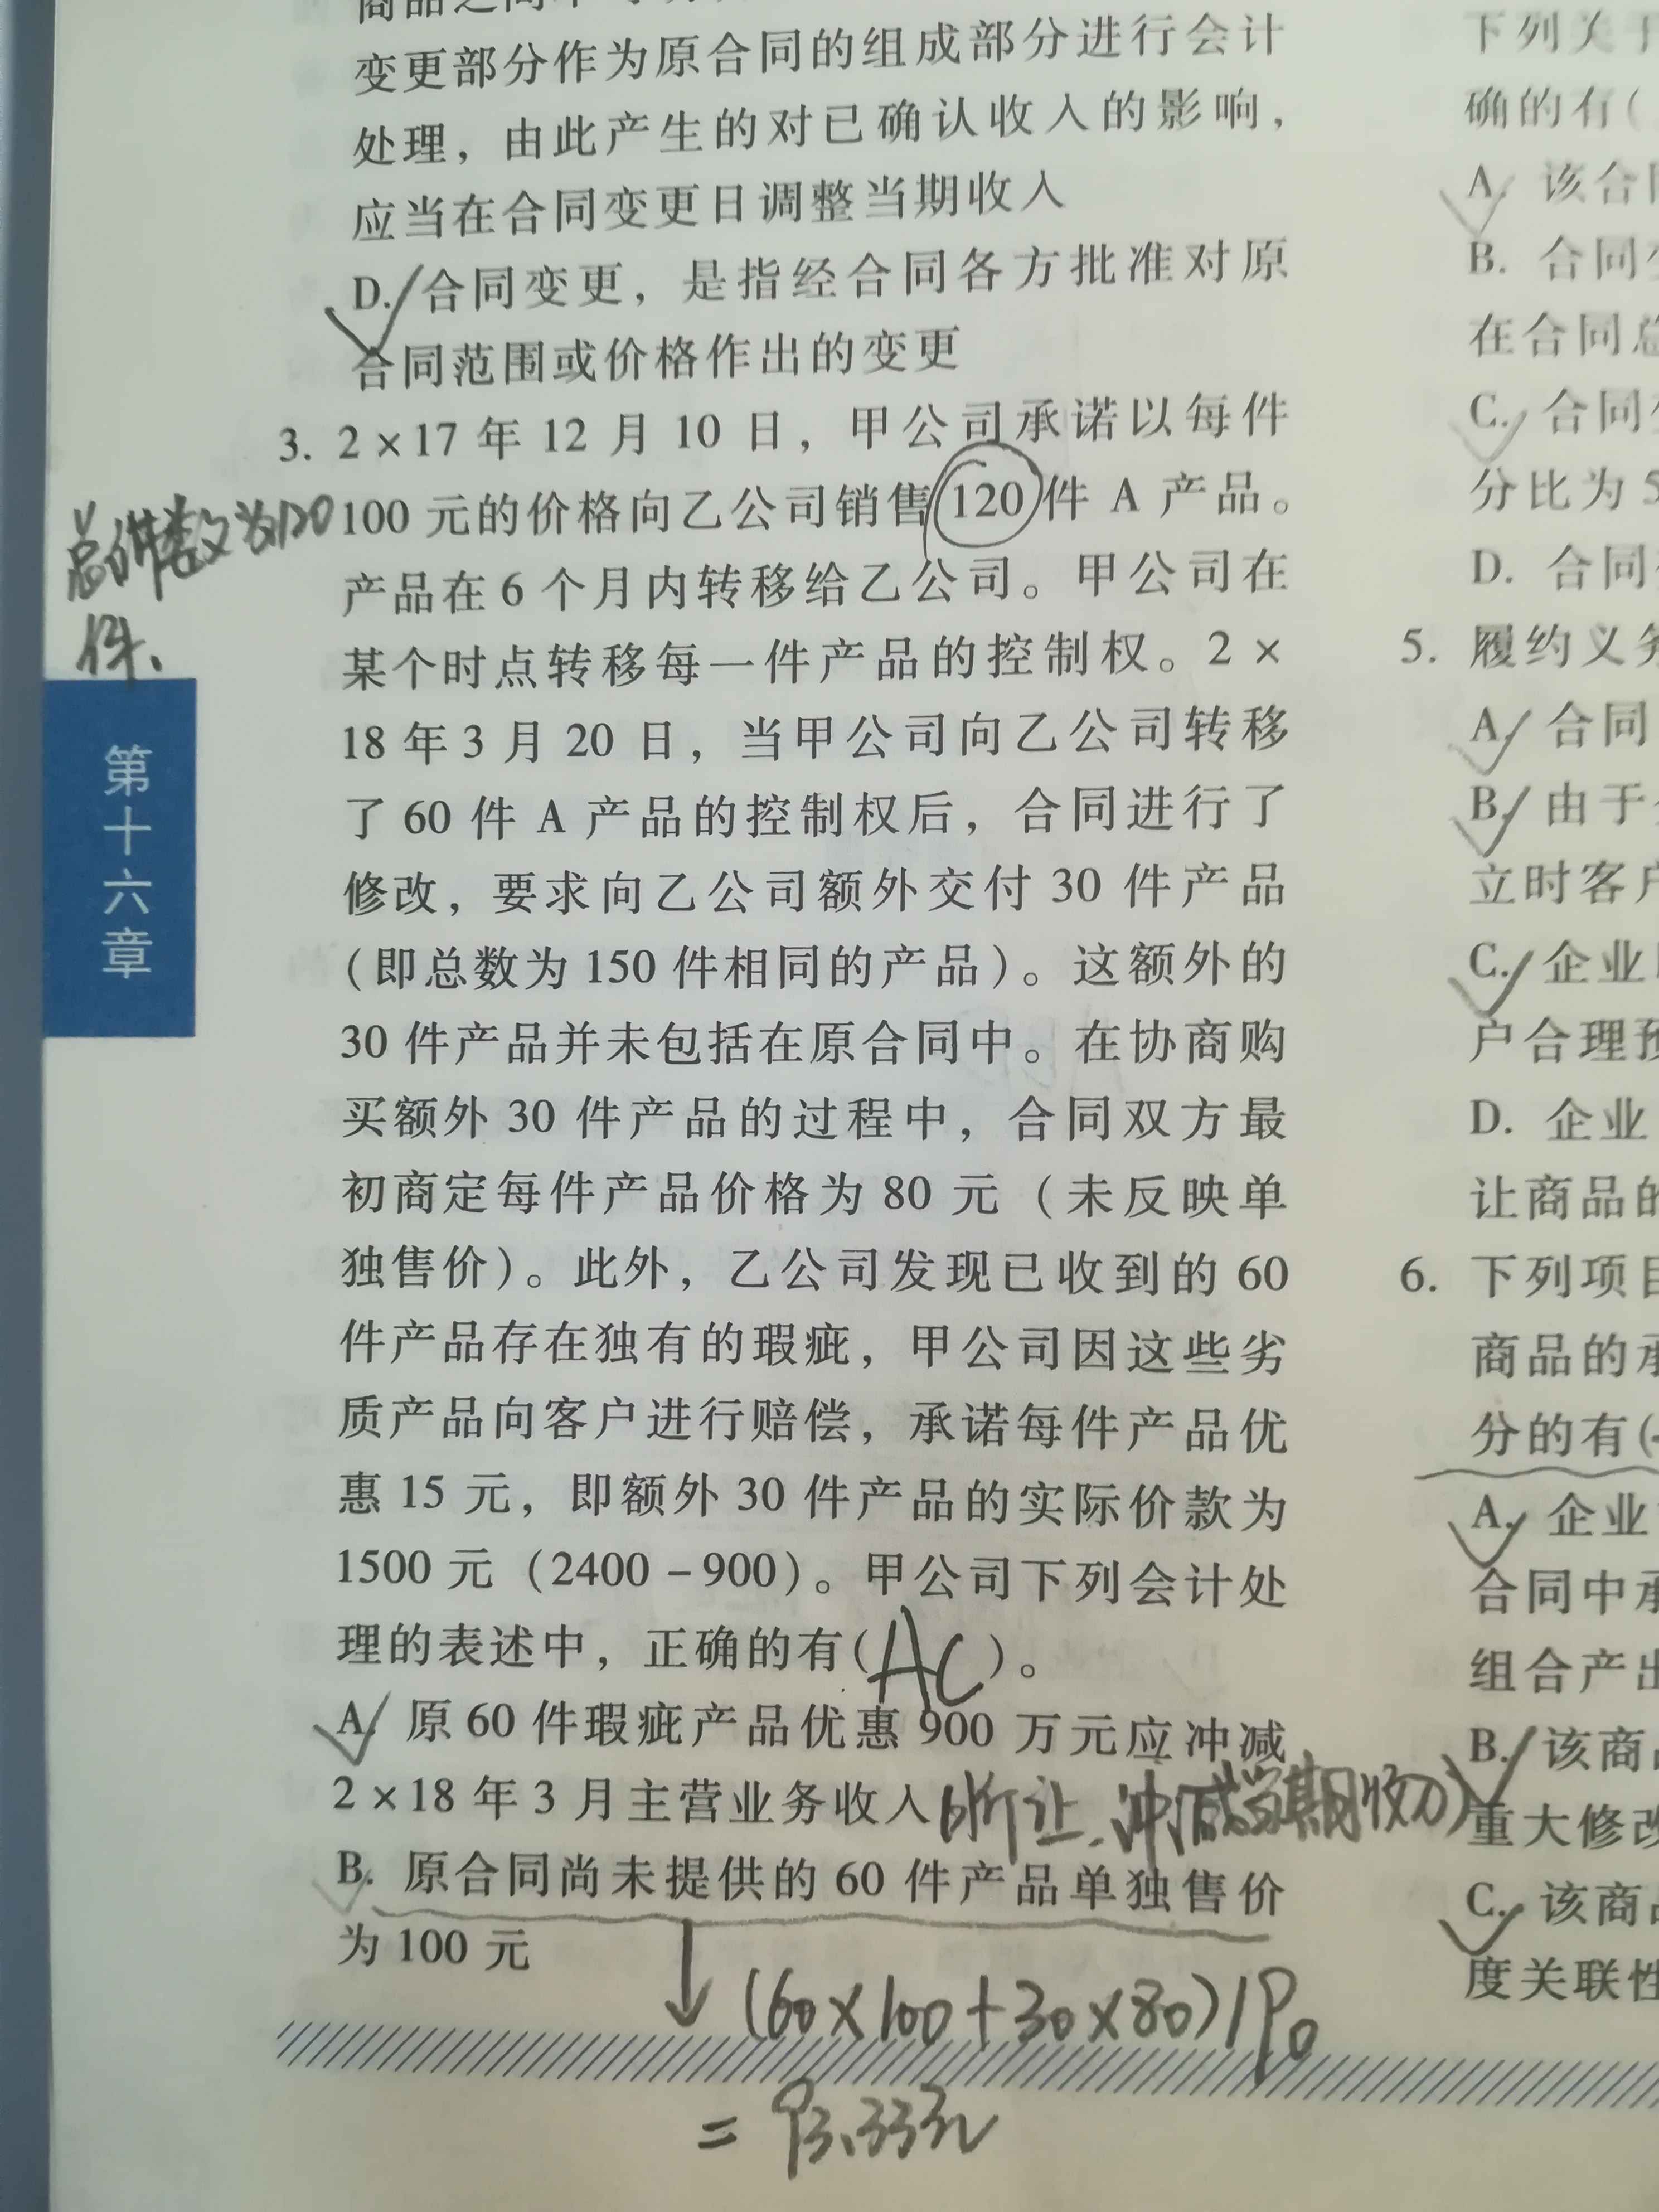 变更部分作为原合同的组成部分进行会计
处理，由此产生的对已确认收入的影响，
应当在合同变更日调整当期收入
D. 合同变更，是指经合同各方批准对原
合同范围或价格作出的变更
3. 2×17 年 12 月 10 日，甲公司承诺以每件
100 元的价格向乙公司销售 120 件 A 产品。
产品在 6 个月内转移给乙公司。甲公司在
某个时点转移每一件产品的控制权。2 ×
18 年 3 月 20 日，当甲公司向乙公司转移
了 60 件 A 产品的控制权后，合同进行了
修改，要求向乙公司额外交付 30 件产品
（即总数为 150 件相同的产品）。这额外的
30 件产品并未包括在原合同中。在协商购
买额外 30 件产品的过程中，合同双方最
初商定每件产品价格为 80 元（未反映单
独售价）。此外，乙公司发现已收到的 60
件产品存在独有的瑕疵，甲公司因这些劣
质产品向客户进行赔偿，承诺每件产品优
惠 15 元，即额外 30 件产品的实际价款为
1500 元（2400 - 900）。甲公司下列会计处
理的表述中，正确的有(AC)。
A. 原 60 件瑕疵产品优惠 900 万元应冲减
2×18 年 3 月主营业务收入(折让.冲减当期收入)
B. 原合同尚未提供的 60 件产品单独售价
为 100 元
(60×100+30×80)/90
= 93.33元
总件数为120
件、
第十六章
下列关于
确的有(
A. 该合同
B. 合同
在合同总
C. 合同
分比为 5
D. 合同
5. 履约义务
A. 合同
B. 由于
立时客户
C. 企业
户合理预
D. 企业
让商品的
6. 下列项目
商品的承
分的有(
A. 企业
合同中承
组合产出
B. 该商品
重大修改
C. 该商品
度关联性